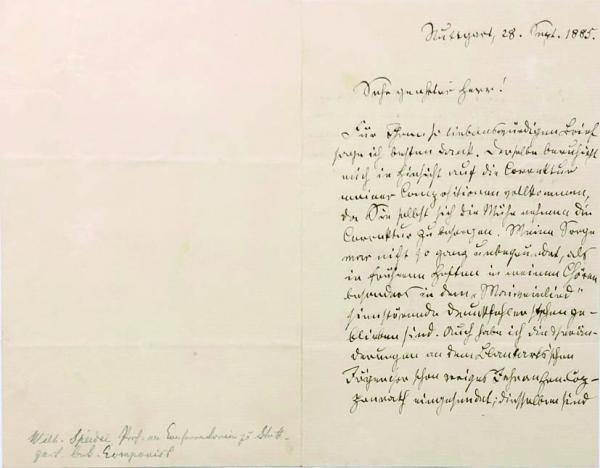 Stuttgart, 28. Sept. 1885.
Sehr geehrter Herr!
Für Ihren so liebenswürdigen Brief
sage ich besten Dank. Derselbe beruhigt
mich in Hinsicht auf die Correktur
meiner Compositionen vollkommen,
da Sie selbst sich die Mühe nehmen die
Correktur zu besorgen. Meine Sorge
war nicht so ganz unbegründet, als
in früheren Heften in meinen Chören
besonders in dem „Maiweinlied"
sinnstörende Druckfehler stehen ge-
blieben sind. Auch habe ich die Verän-
derungen an dem schen
Jägerchor schon
eingesendet; dieselben sind
Wilh. Speidel Prof. am Conservatorium zu Stutt-
gart. Componist